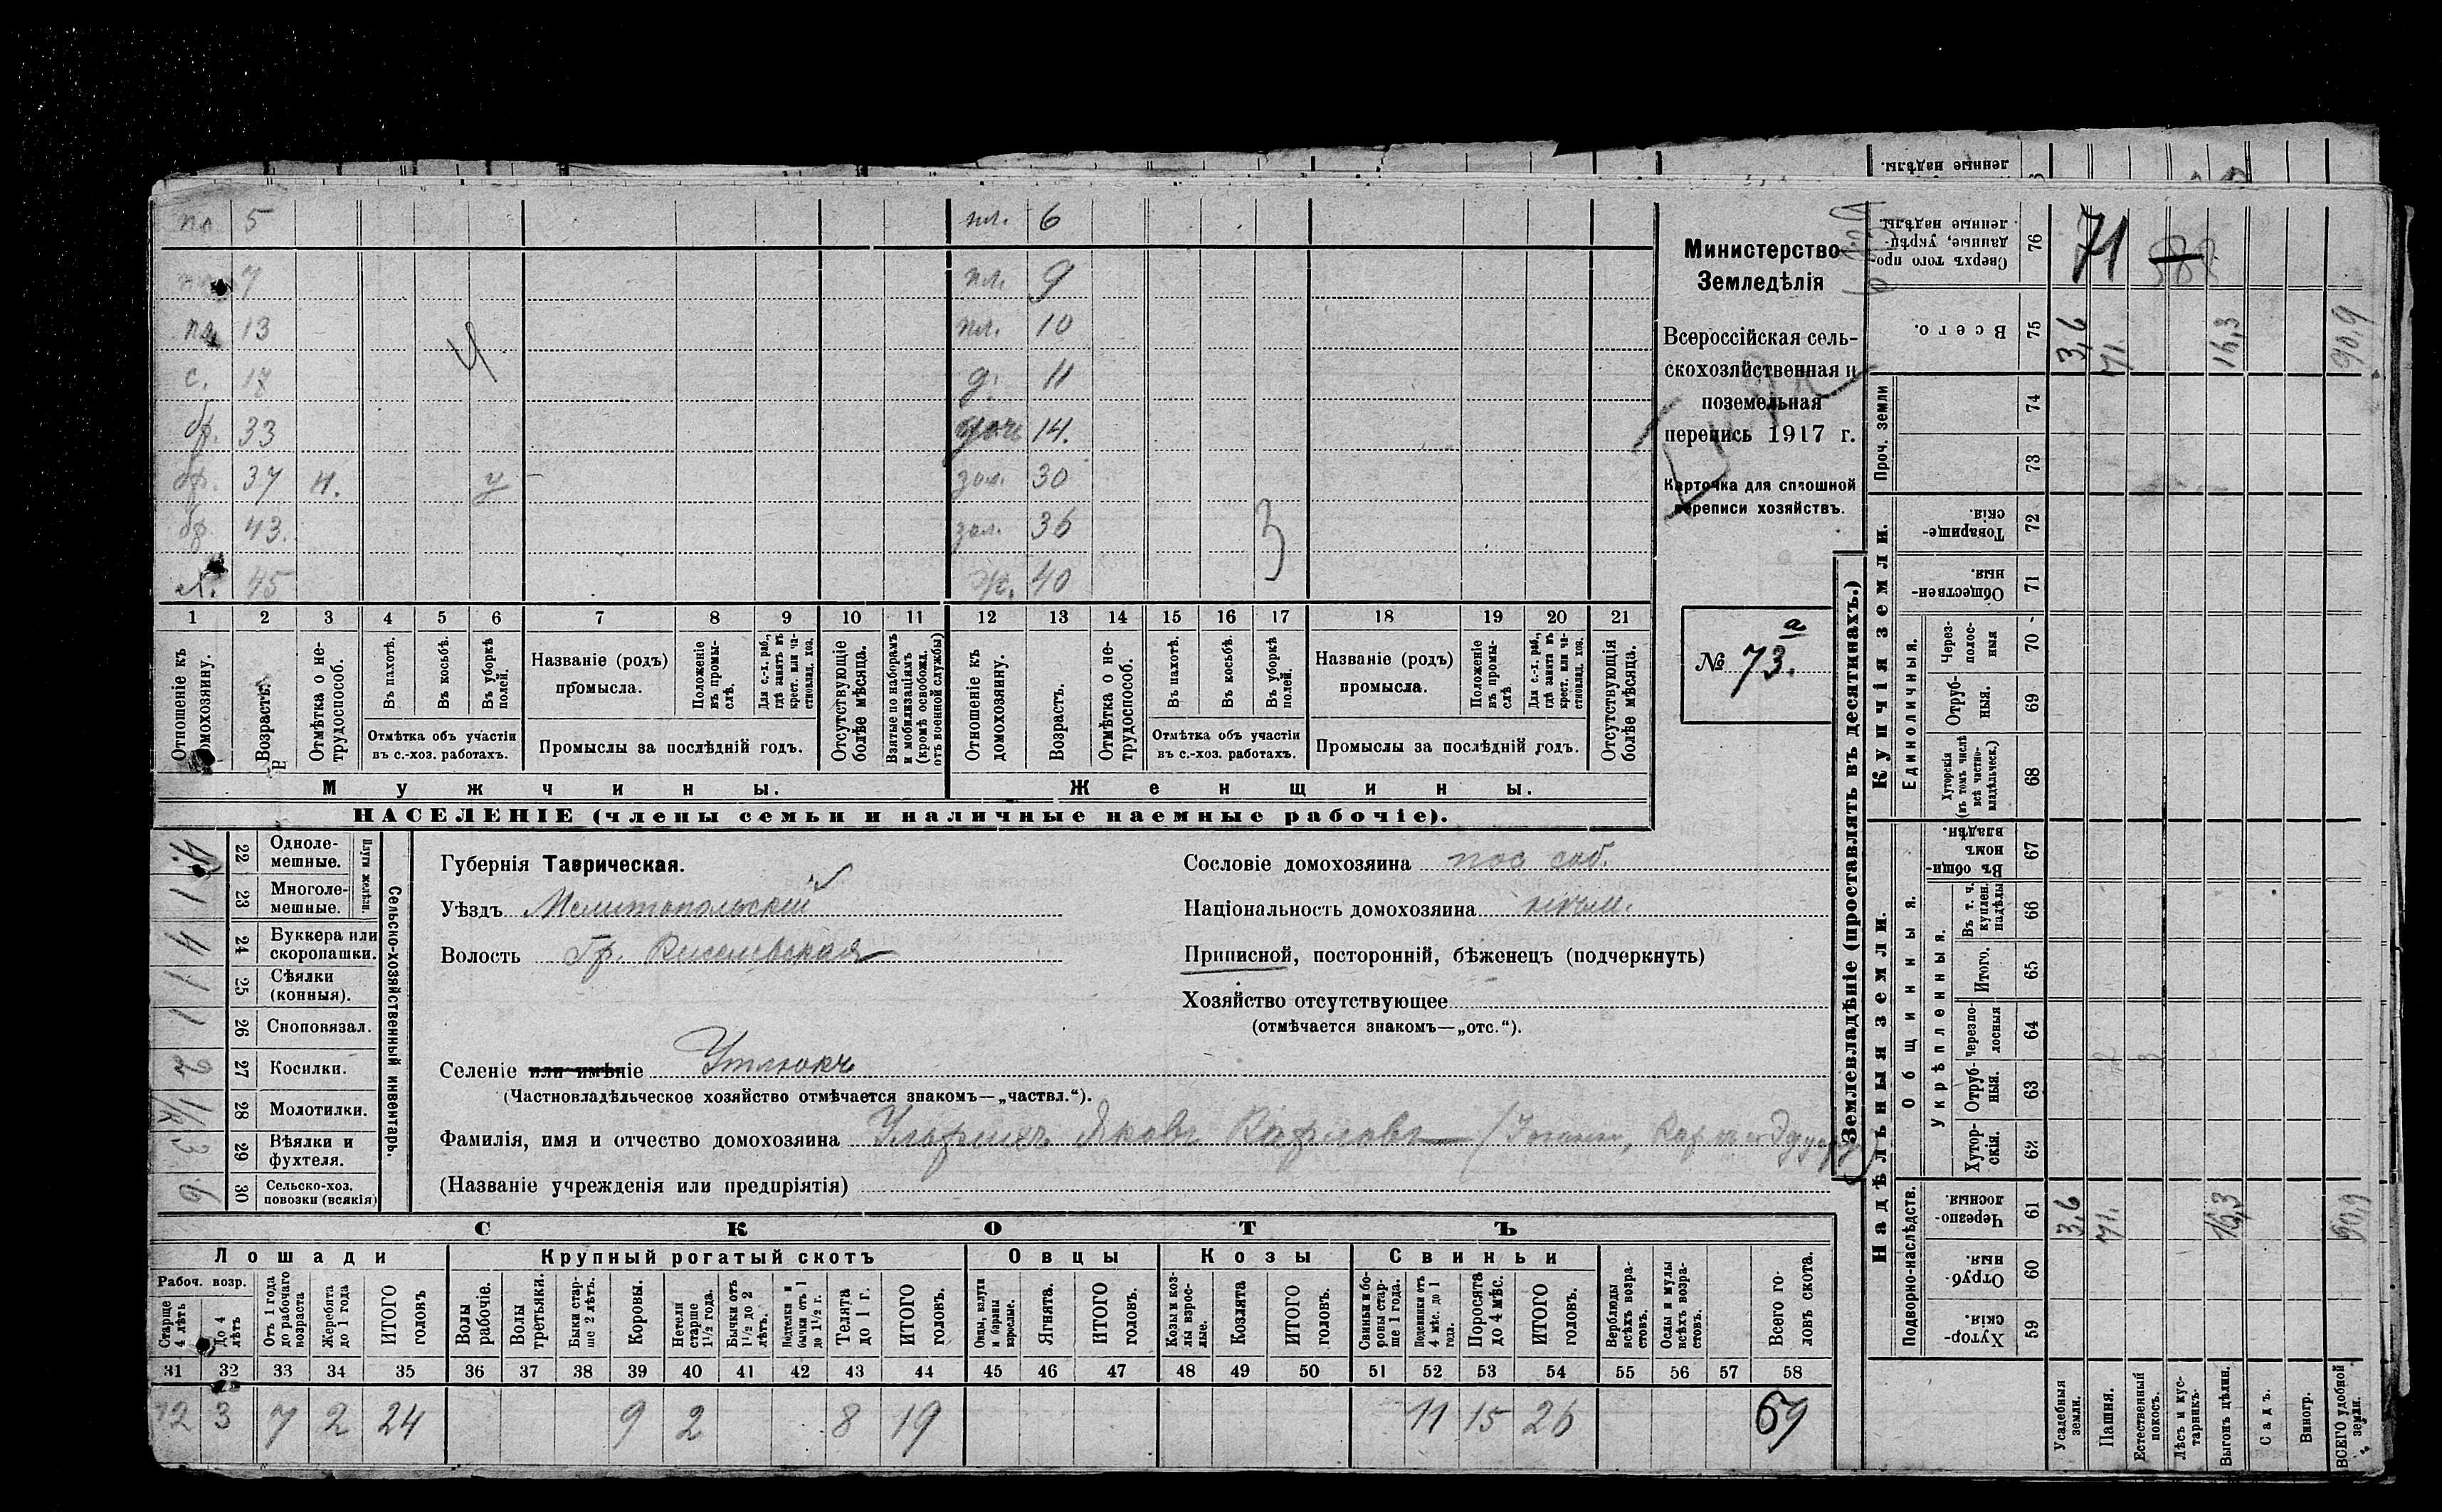 по 5 пл. 6
7 пл. 9
пл. 13 пл. 10
с. 17 4 д. 11
бр. 33 дочь 14.
бр. 37 н. у - зол. 30
бр. 43. зол. 36 3
х. 45 ж. 40
1 2 3 4 5 6 7 8 9 10 11 12 13 14 15 16 17 18 19 20 21
Отношеніе къ домохозяину.
Возрастъ.
Отмѣтка о нетрудоспособ.
Въ пахотѣ.
Въ косьбѣ.
Въ уборкѣ полей.
Отмѣтка объ участіи въ с.-хоз. работахъ.
Названіе (родъ) промысла.
Положеніе въ промыслѣ.
Для с.-х. раб., гдѣ занятъ въ крест. или частновлад. хоз.
Промыслы за послѣдній годъ.
Отсутствующіе болѣе мѣсяца.
Взятые по наборамъ и мобилизаціямъ (кромѣ освобожд. отъ военной службы)
Отношеніе къ домохозяину.
Возрастъ.
Отмѣтка о нетрудоспособ.
Въ пахотѣ.
Въ косьбѣ.
Въ уборкѣ полей.
Отмѣтка объ участіи въ с.-хоз. работахъ.
Названіе (родъ) промысла.
Положеніе въ промыслѣ.
Для с.-х. раб., гдѣ занята въ крест. или частновлад. хоз.
Промыслы за послѣдній годъ.
Отсутствующія болѣе мѣсяца.
Мужчины. Женщины.
НАСЕЛЕНІЕ (члены семьи и наличные наемные рабочіе).
Министерство
Земледѣлія
Всероссійская сель-
скохозяйственная и
поземельная
перепись 1917 г.
Карточка для сплошной
переписи хозяйствъ.
№ 73.а
22 Одноле-мешные. 4.
23 Многоле-мешные. 1
Плуги желѣзн.
24 Буккера или скоропашки. 4
25 Сѣялки (конныя). 1
26 Сноповязал. 1
27 Косилки. 2
28 Молотилки. 1/к
29 Вѣялки и фухтеля. 3
30 Сельско-хоз. повозки (всякія) 6
Сельско-хозяйственный инвентарь.
Губернія Таврическая.
Уѣздъ Мелитопольскій
Волость Гр.
Селеніе или имѣніе Утлюкъ
(Частновладѣльческое хозяйство отмѣчается знакомъ—„частвл.“).
Фамилія, имя и отчество домохозяина Яковъ Карловъ
(Названіе учрежденія или предпріятія)
Сословіе домохозяина пос соб.
Національность домохозяина нѣм.
Приписной, посторонній, бѣженецъ (подчеркнуть)
Хозяйство отсутствующее
(отмѣчается знакомъ—„отс.“).
СКОТЪ
Лошади Крупный рогатый скотъ Овцы Козы Свиньи
Рабоч. возр.
Старше 4 лѣтъ
До 4 лѣтъ
Отъ 1 года до рабочаго возраста
Жеребята до 1 года
ИТОГО головъ
Волы рабочіе.
Волы третьяки.
Быки старше 2 лѣтъ.
Коровы.
Нетели старше 1½ года.
Бычки отъ 1½ до 2 лѣтъ.
Подтелки и бычки отъ 1 до 1½ г.
Телята до 1 г.
ИТОГО головъ.
Овцы, валухи и бараны взрослые.
Ягнята.
ИТОГО головъ.
Козы и козлы взрослые.
Козлята
ИТОГО головъ.
Свиньи и боровы старше 1 года.
Подсвинки отъ 4 мѣс. до 1 года.
Поросята до 4 мѣс.
ИТОГО головъ.
Верблюды всѣхъ возрастовъ.
Ослы и мулы всѣхъ возрастовъ.
Всего головъ скота.
31 32 33 34 35 36 37 38 39 40 41 42 43 44 45 46 47 48 49 50 51 52 53 54 55 56 57 58
12 3 7 2 24 9 2 8 19 11 15 26 69
Землевладѣніе (проставлять въ десятинахъ.)
Надѣльныя земли. Купчія земли. Проч. земли
Подворно-наслѣдств.
Общинныя.
Укрѣпленныя.
Единоличныя.
ленные надѣлы.
Сверхъ того проданные, укрѣпленные надѣлы. 76 71 588
Всего. 75 3,6 71. 16,3 90,9
74
73
Товарищескія. 72
Общественныя. 71
Черезполосныя 70
Отрубныя. 69
Хуторскія (въ томъ числѣ всѣ частновладѣльческ.) 68
Въ общинномъ владѣн. 67
Въ т. ч. куплен. надѣлы 66
Итого. 65
Черезполосныя 64
Отрубныя. 63
Хуторскія. 62
Черезполосныя 61 3,6 71. 16,3 90,9
Отрубныя. 60
Хуторскія. 59
Усадебныя земли.
Пашня.
Естественный покосъ.
Лѣсъ и кустарникъ.
Выгонъ цѣлин.
Садъ.
Виногр.
ВСЕГО удобной земли.